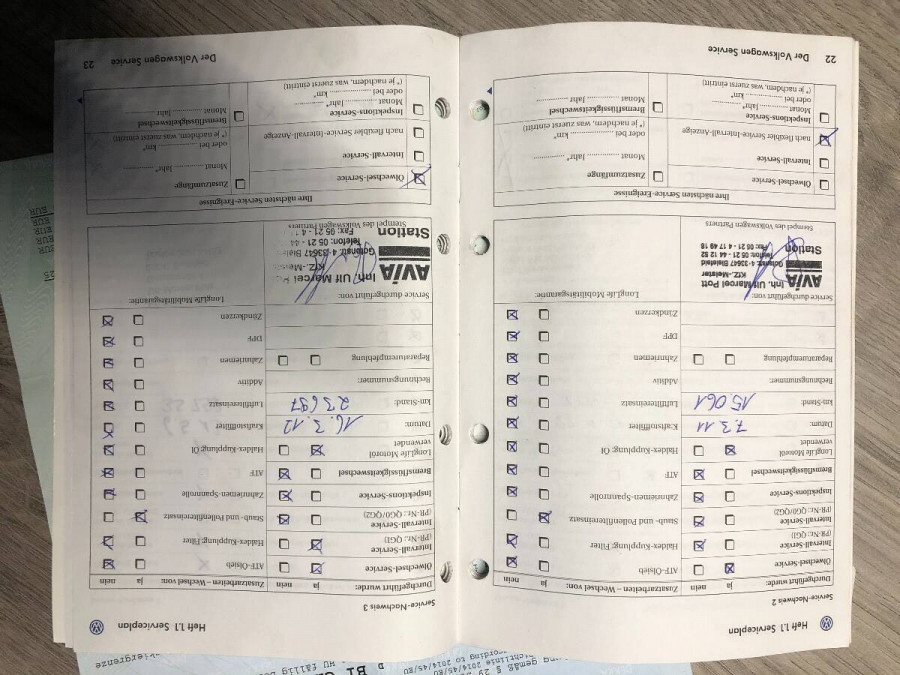 Heft 1.1 Serviceplan
Service-Nachweis 2
Durchgeführt wurde: ja nein
Ölwechsel-Service
Intervall-Service
(PR-Nr.: QG1)
Intervall-Service
(PR-Nr.: QG0/QG2)
Inspektions-Service
Bremsflüssigkeitswechsel
LongLife Motoröl
verwendet
Datum: 7.3.11
km-Stand: 15 061
Rechnungsnummer:
Reparaturempfehlung
Zusatzarbeiten – Wechsel von: ja nein
ATF-Ölsieb
Haldex-Kupplung: Filter
Staub- und Pollenfiltereinsatz
Zahnriemen-Spannrolle
ATF
Haldex-Kupplung: Öl
Kraftstofffilter
Luftfiltereinsatz
Additiv
Zahnriemen
DPF
Zündkerzen
Service durchgeführt von:
LongLife Mobilitätsgarantie:
AVIA
Station
Inh. Ulf Marcel Pott
KFZ.-Meister
Gotenstr. 4 · 33647 Bielefeld
Telefon: 05 21 - 44 12 52
Fax: 05 21 - 4 17 49 18
Stempel des Volkswagen Partners
Ihre nächsten Service-Ereignisse
Ölwechsel-Service
Intervall-Service
nach flexibler Service-Intervall-Anzeige
Inspektions-Service
Monat ............ Jahr* ............
oder bei ............ km*
(* je nachdem, was zuerst eintritt)
Zusatzumfänge
Monat ............ Jahr* ............
oder bei ............ km*
(* je nachdem, was zuerst eintritt)
Bremsflüssigkeitswechsel
Monat ............ Jahr ............
22 Der Volkswagen Service
Heft 1.1 Serviceplan
Service-Nachweis 3
Durchgeführt wurde: ja nein
Ölwechsel-Service
Intervall-Service
(PR-Nr.: QG1)
Intervall-Service
(PR-Nr.: QG0/QG2)
Inspektions-Service
Bremsflüssigkeitswechsel
LongLife Motoröl
verwendet
Datum: 16.3.12
km-Stand: 23 697
Rechnungsnummer:
Reparaturempfehlung
Zusatzarbeiten – Wechsel von: ja nein
ATF-Ölsieb
Haldex-Kupplung: Filter
Staub- und Pollenfiltereinsatz
Zahnriemen-Spannrolle
ATF
Haldex-Kupplung: Öl
Kraftstofffilter
Luftfiltereinsatz
Additiv
Zahnriemen
DPF
Zündkerzen
Service durchgeführt von:
LongLife Mobilitätsgarantie:
AVIA
Station
Inh. Ulf Marcel
KFZ.-Me
Gotenstr. 4 · 33647 Biele
Telefon: 05 21 - 44
Fax: 05 21 - 4 1
Stempel des Volkswagen Partners
Ihre nächsten Service-Ereignisse
Ölwechsel-Service
Intervall-Service
nach flexibler Service-Intervall-Anzeige
Inspektions-Service
Monat ............ Jahr* ............
oder bei ............ km*
(* je nachdem, was zuerst eintritt)
Zusatzumfänge
Monat ............ Jahr* ............
oder bei ............ km*
(* je nachdem, was zuerst eintritt)
Bremsflüssigkeitswechsel
Monat ............ Jahr ............
Der Volkswagen Service 23
EUR
EUR
EUR